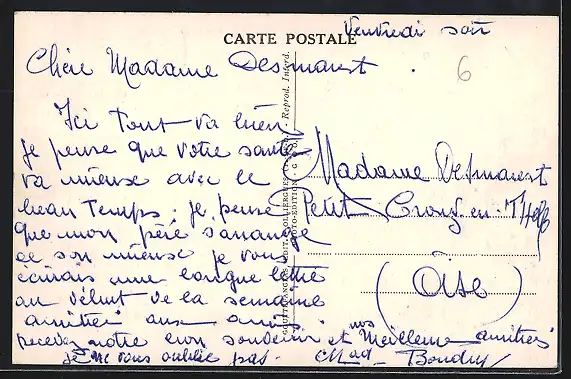 Vendredi soir
CARTE POSTALE
6
Chère Madame Desmarest
Ici tout va bien
je pense que votre santé
va mieux avec ce
beau temps. je pense
que mon père s'arrange
ce soir mieux je vous
écrirais une longue lettre
au début de la semaine
amitiés aux amis.
recevez notre bon souvenir et nos Meilleures amitiés
je ne vous oublie pas. Mad Boudry
Madame Desmarest
Petit Crouy en Thelle
(Oise)
Reprod. Interd.